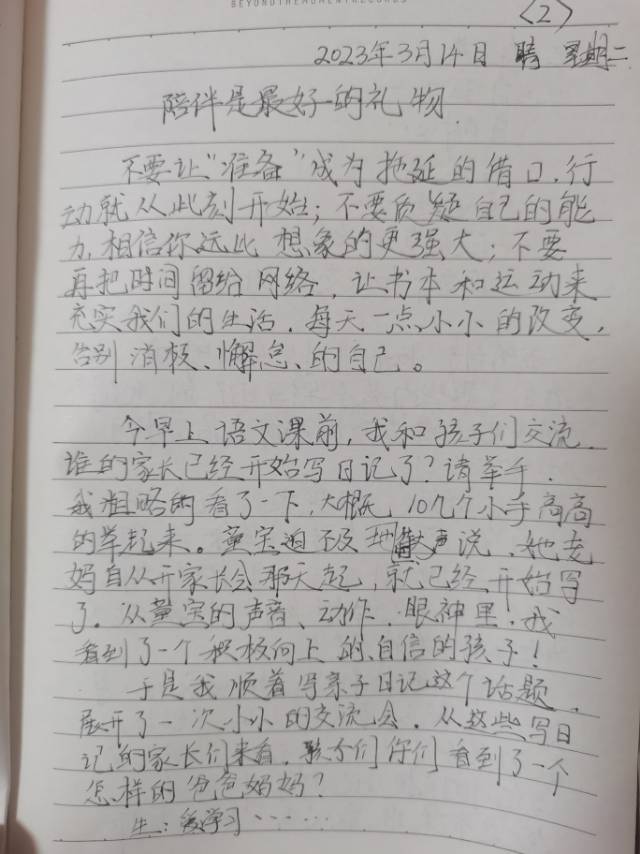 BEYOND THE MOMENT RECORDS
<2>
2023年3月14日 晴 星期二
陪伴是最好的礼物.
不要让"准备"成为拖延的借口,行
动就从此刻开始;不要质疑自己的能
力,相信你远比想象的更强大;不要
再把时间留给网络,让书本和运动来
充实我们的生活,每天一点小小的改变,
告别消极、懈怠、的自己。
今早上语文课前,我和孩子们交流,
谁的家长已经开始写日记了?请举手.
我粗略的看了一下,大概,10几个小手高高
的举起来。董宝迫不及 大声说,她
妈自从开家长会那天起,就已经开始写
了。从董宝的声音、动作、眼神里,我
看到了一个积极向上的、自信的孩子!
于是我顺着写亲子日记这个话题,
展开了一次小小的交流会,从这些写日
记的家长们来看,孩子们你们看到了一个
怎样的爸爸妈妈?
生:爱学习……